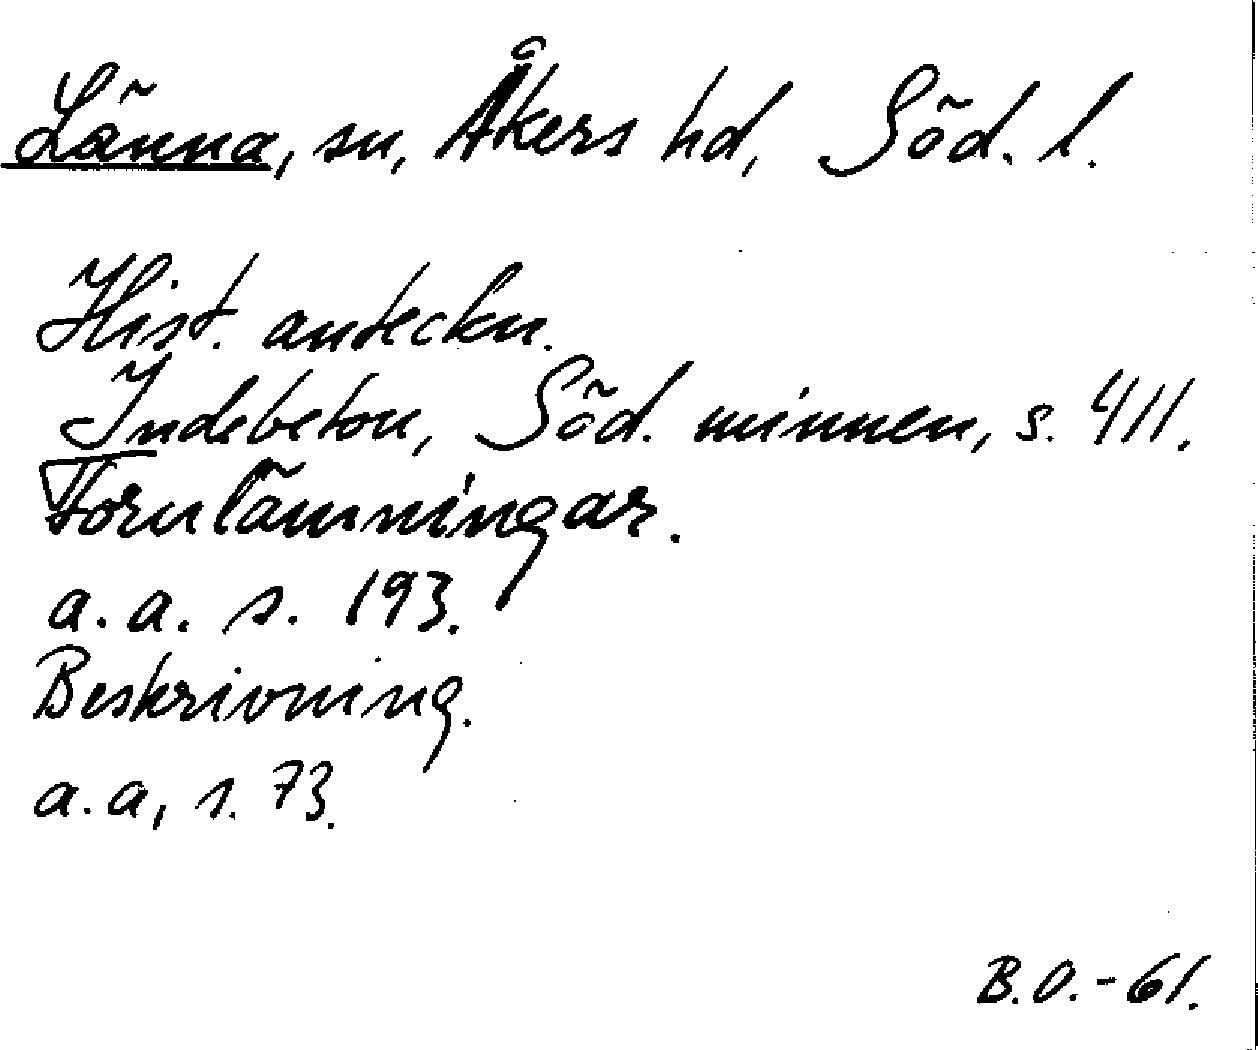 Länna, sn, Åkers hd, Söd. l.
Hist. anteckn.
Indebetou, Söd. minnen, s. 411.
Fornlämningar.
a. a. s. 193.
Beskrivning.
a. a, s. 73.
B.O. - 61.